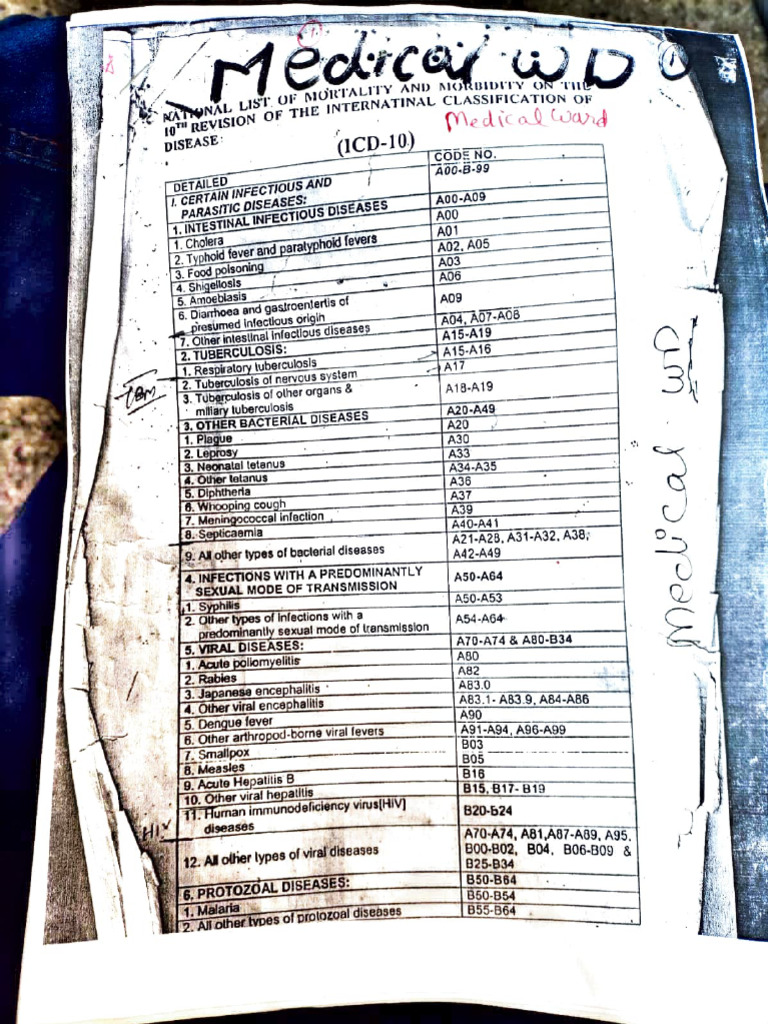 Medical WD
1
NATIONAL LIST OF MORTALITY AND MORBIDITY ON THE
10TH REVISION OF THE INTERNATINAL CLASSIFICATION OF
DISEASE:
Medical Ward
(ICD-10)
DETAILED CODE NO.
I. CERTAIN INFECTIOUS AND A00-B-99
PARASITIC DISEASES:
1. INTESTINAL INFECTIOUS DISEASES A00-A09
1. Cholera A00
2. Typhoid fever and paratyphoid fevers A01
3. Food poisoning A02, A05
4. Shigellosis A03
5. Amoebiasis A06
6. Diarrhoea and gastroentertis of
presumed infectious origin A09
7. Other intestinal infectious diseases A04, A07-A08
2. TUBERCULOSIS: A15-A19
1. Respiratory tuberculosis A15-A16
2. Tuberculosis of nervous system A17
TBM
3. Tuberculosis of other organs &
miliary tuberculosis A18-A19
3. OTHER BACTERIAL DISEASES A20-A49
1. Plague A20
2. Leprosy A30
3. Neonatal tetanus A33
4. Other tetanus A34-A35
5. Diphtheria A36
6. Whooping cough A37
7. Meningococcal infection A39
8. Septicaemia A40-A41
9. All other types of bacterial diseases A21-A28, A31-A32, A38,
A42-A49
4. INFECTIONS WITH A PREDOMINANTLY
SEXUAL MODE OF TRANSMISSION A50-A64
1. Syphilis A50-A53
2. Other types of infections with a
predominantly sexual mode of transmission A54-A64
5. VIRAL DISEASES: A70-A74 & A80-B34
1. Acute poliomyelitis A80
2. Rabies A82
3. Japanese encephalitis A83.0
4. Other viral encephalitis A83.1- A83.9, A84-A86
5. Dengue fever A90
6. Other arthropod-borne viral fevers A91-A94, A96-A99
7. Smallpox B03
8. Measles B05
9. Acute Hepatitis B B16
10. Other viral hepatitis B15, B17- B19
11. Human immunodeficiency virus[HIV]
diseases B20-B24
HIV
12. All other types of viral diseases A70-A74, A81,A87-A89, A95,
B00-B02, B04, B06-B09 &
B25-B34
6. PROTOZOAL DISEASES: B50-B64
1. Malaria B50-B54
2. All other types of protozoal diseases B55-B64
Medical WD